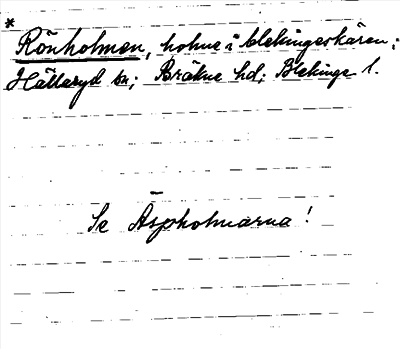 *
Rönholmen, holme i blekingeskären;
Hällaryd sn; Bräkne hd; Blekinge l.
Se Äspholmarna!